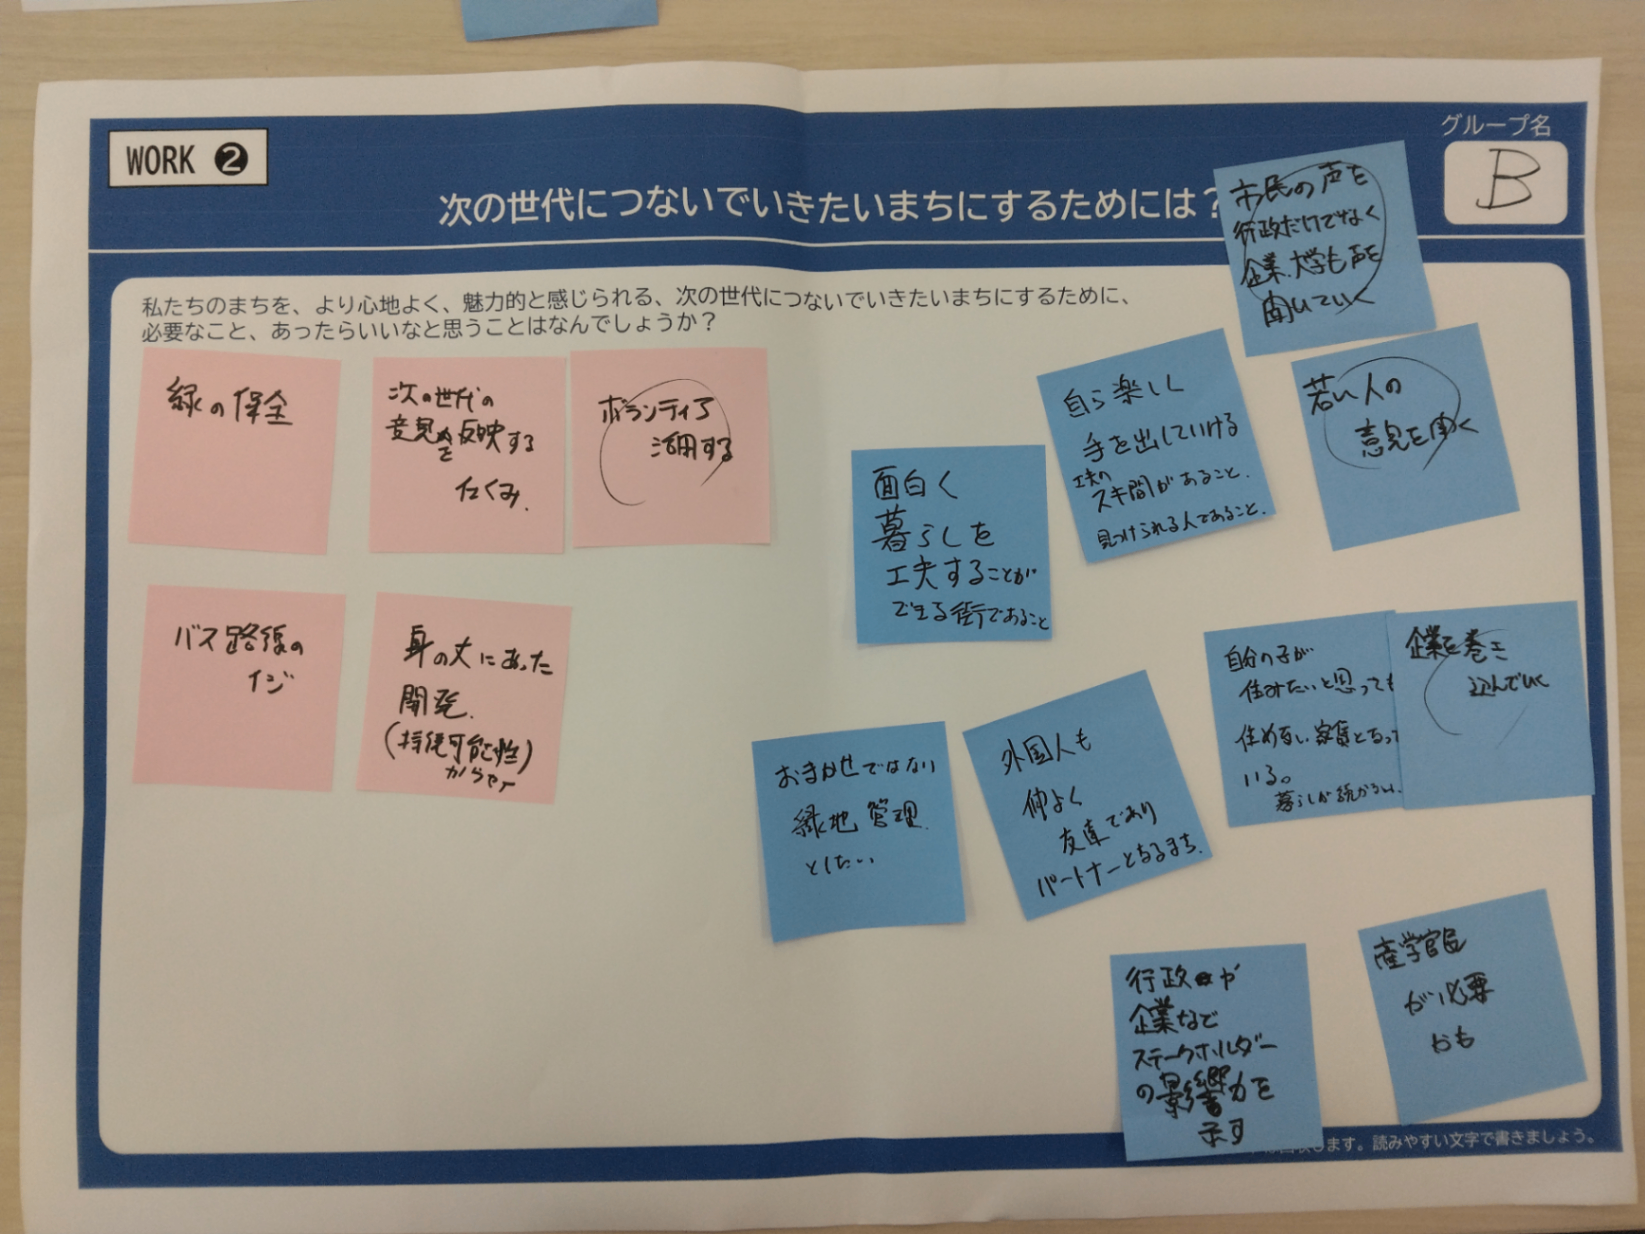 WORK ❷
グループ名
B
次の世代につないでいきたいまちにするためには？
私たちのまちを、より心地よく、魅力的と感じられる、次の世代につないでいきたいまちにするために、
必要なこと、あったらいいなと思うことはなんでしょうか？
緑の保全
次の世代の
意見を反映する
しくみ
ボランティア
活用する
バス路線の
イジ
身の丈にあった
開発.
(持続可能性)
面白く
暮らしを
工夫することが
できる街であること
自ら楽しく
手を出していける
工夫の
スキ間があること.
見つけられる人であること.
市民の声を
行政だけでなく
企業、大学も声を
聞いていく
若い人の
意見を聞く
おまかせではない
緑地管理
としたい
外国人も
仲よく
友達であり
パートナーとなるまち.
自分の子が
住みたいと思っても
住めない家賃となって
いる。
暮らしが続かない.
企業を巻き
込んでいく
行政や
企業など
ステークホルダー
の影響力を
示す
産学官民
が必要
かも
ます。読みやすい文字で書きましょう。